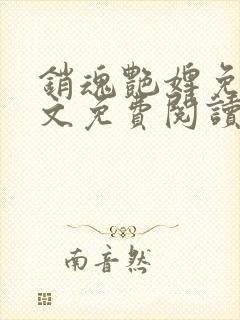 銷魂艷婢免
文免費閱讀
南音然